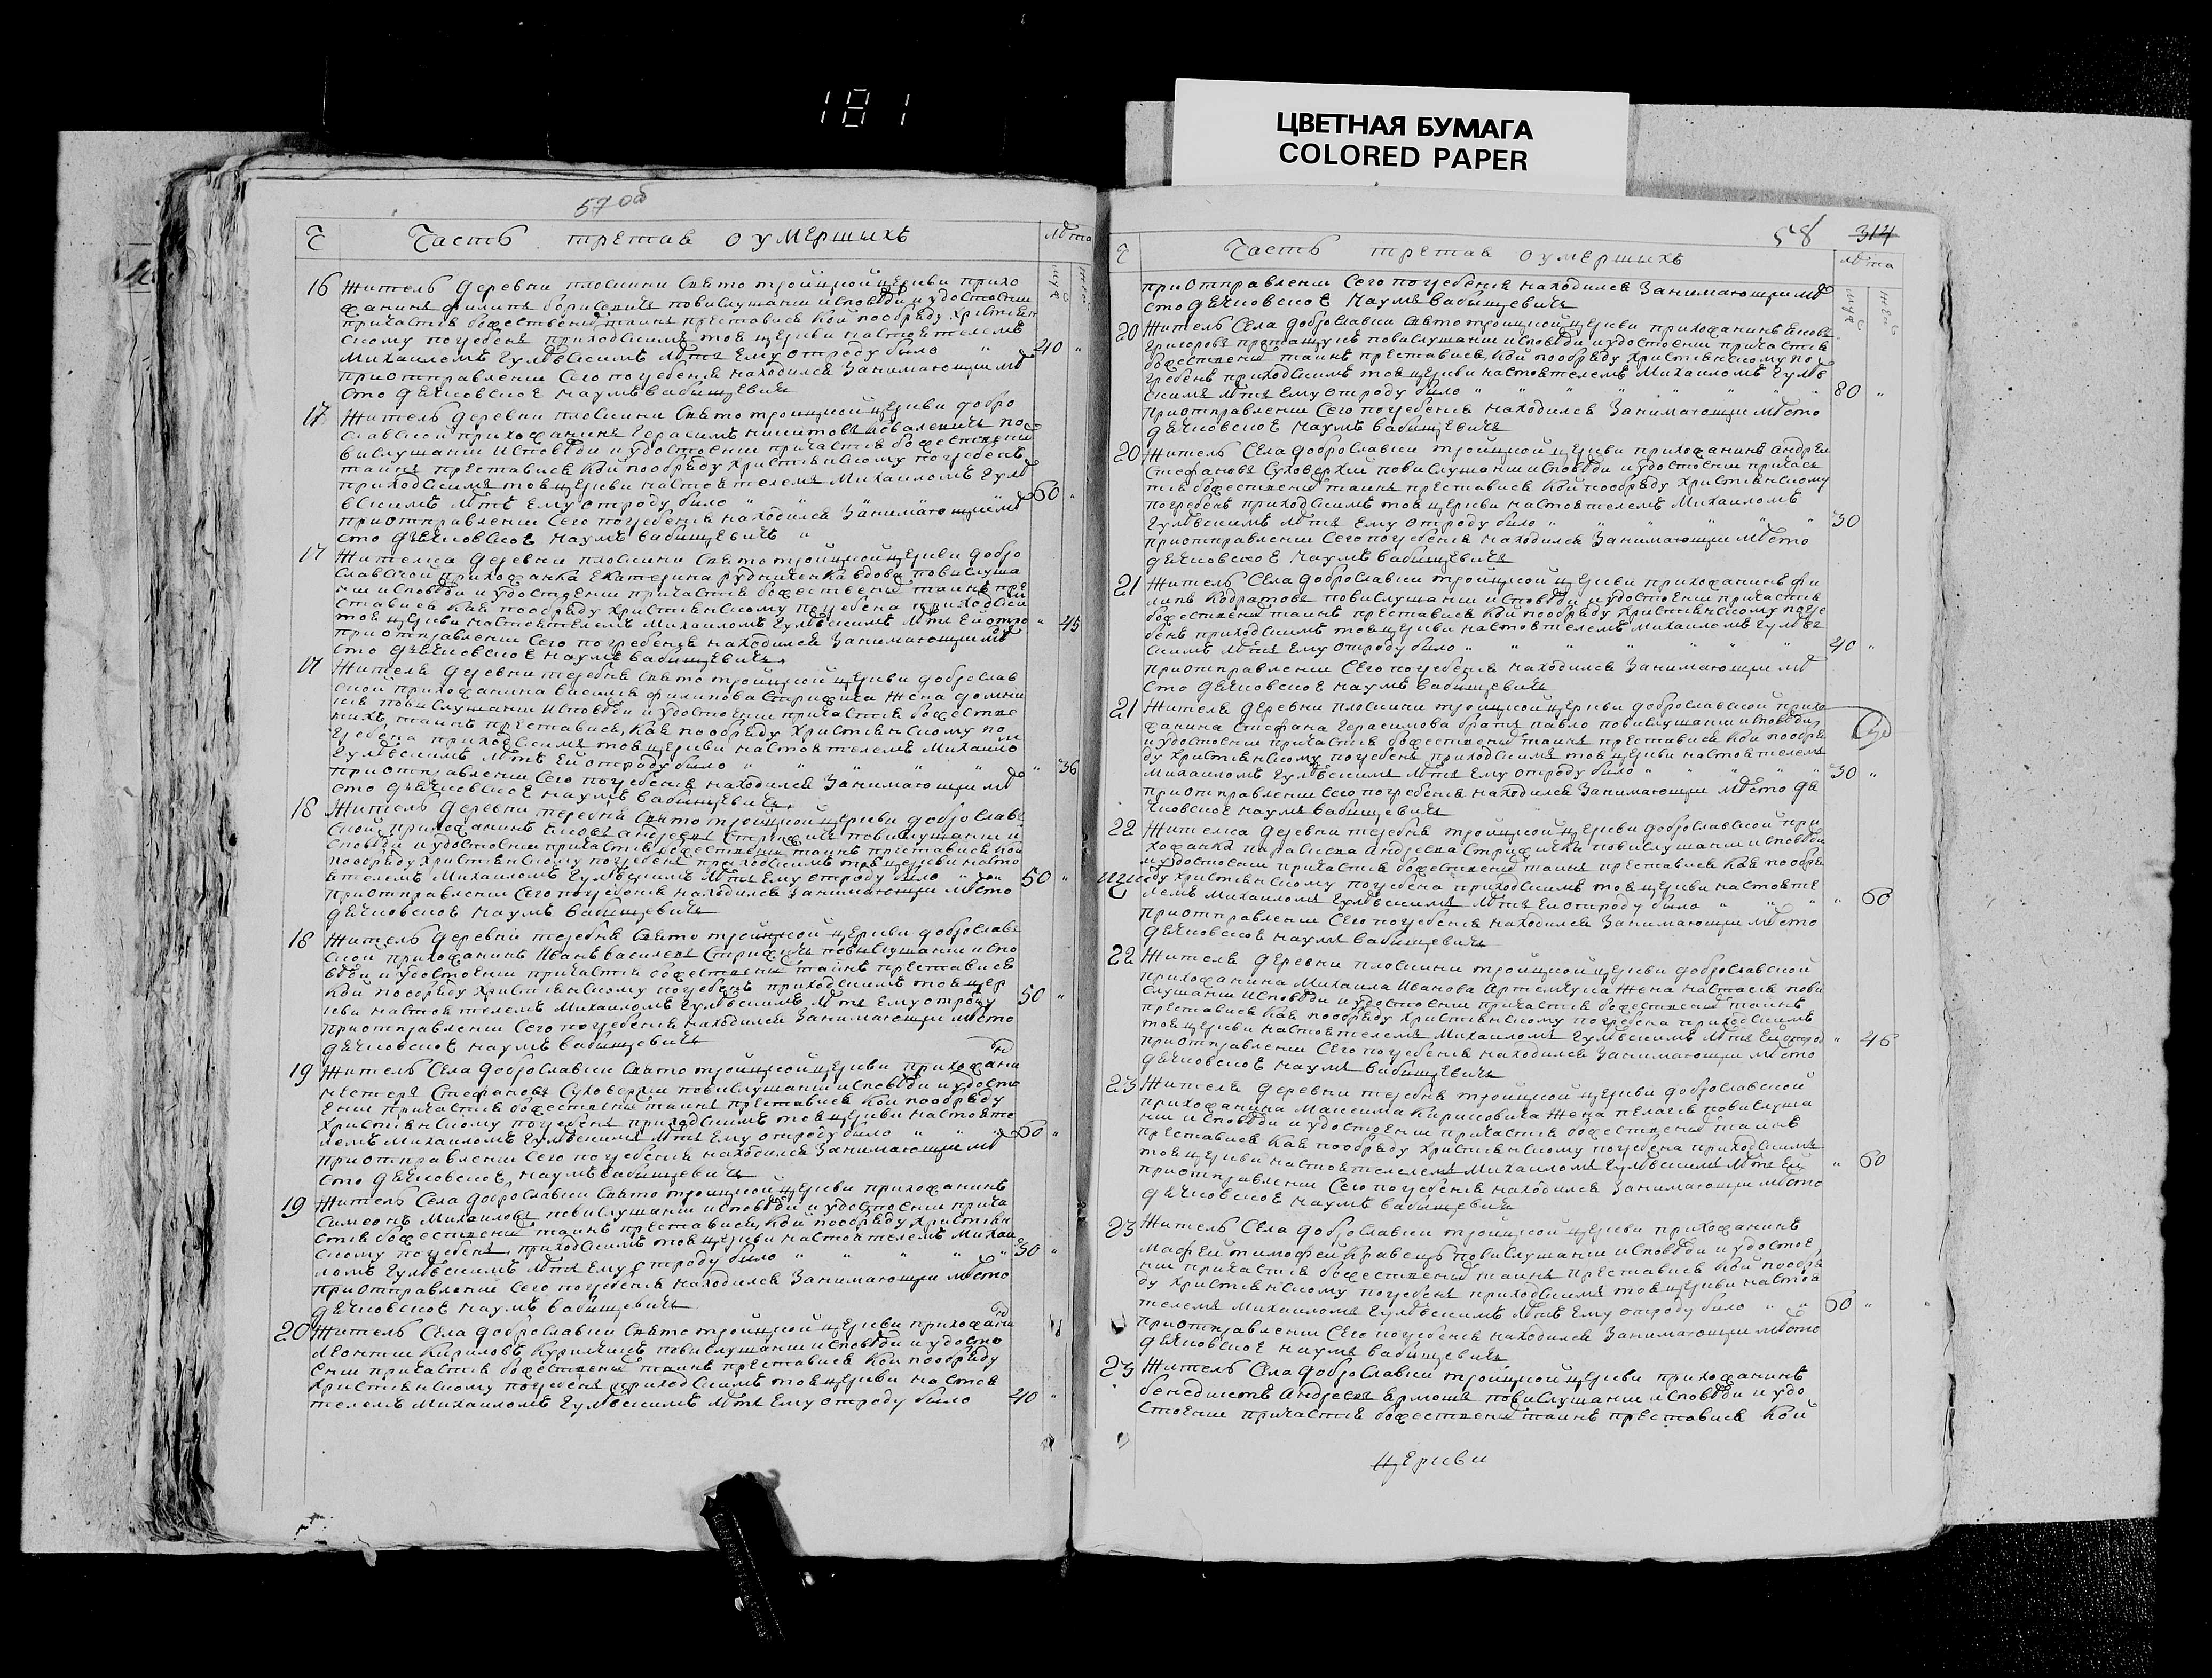 181
ЦВЕТНАЯ БУМАГА
COLORED PAPER
57 об
Часть третая о умершихъ
лѣта
16 Житель деревни плоскини Свято троицкой церкви прихо
жанинъ филипъ борисевичъ повислушании исповѣди и удостоении
причастия божественныхъ таинъ преставися кой пообряду християн
скому погребенъ приходскимъ тоя церкви настоятелемъ
Михаиломъ Гулѣвскимъ лѣтъ Ему отроду было 40
приотправлении Сего погребения находился Занимающии мѣ
сто дячковское наумъ вабищевичъ
17 Житель деревни плоскини Свято троицкой церкви добро
славской прихожанинъ Герасимъ никитовъ Ковалевичъ по
вислушании исповѣди и удостоении причастия божественныхъ
таинъ преставися кой пообряду християнскому погребенъ
приходскимъ тоя церкви настоятелемъ Михаиломъ Гулѣ
вскимъ лѣтъ Ему отроду было 60
приотправлении Сего погребения находился Занимающии мѣ
сто дячковское наумъ вабищевичъ
17 Жителка деревни плоскини Свято троицкой церкви добро
славской прихожанка Екатерина рудниченка вдова повислуша
нии исповѣди и удостоении причастия божественныхъ таинъ пре
ставися кая пообряду християнскому погребена приходским
тоя церкви настоятелемъ Михаиломъ Гулѣвскимъ лѣтъ Ей отро 45
приотправлении Сего погребения находился Занимающии мѣ
сто дячковское наумъ вабищевичъ
17 Жителя деревни теребня Свято троицкой церкви доброслав
ской прихожанина василия филипова Стрижича Жена домни
кия повислушании исповѣди и удостоении причастия божествен
ныхъ таинъ преставися, кая пообряду християнскому по
гребена приходскимъ тоя церкви настоятелемъ Михаило
Гулѣвскимъ лѣтъ Ей отроду было 36
приотправлении Сего погребения находился Занимающии мѣ
сто дячковское наумъ вабищевичъ
18 Житель деревни теребня Свято троицкой церкви доброславс
ской прихожанинъ яковъ андреевъ Стрижичъ повислушании и
споведи и удостоении причастия божественныхъ таинъ преставися кой
пообряду християнскому погребенъ приходскимъ тоя церкви насто
ятелемъ Михаиломъ Гулѣвскимъ лѣтъ Ему отроду было 50
приотправлении Сего погребения находился Занимающии мѣсто
дячковское наумъ вабищевичъ
18 Житель деревни теребня Свято троицкой церкви доброславс
ской прихожанинъ Иванъ василевъ Стрижичъ повислушании испо
вѣди и удостоении причастия божественныхъ таинъ преставися
кой пообряду християнскому погребенъ приходскимъ тоя цер
кви настоятелемъ Михаиломъ Гулѣвскимъ лѣтъ Ему отроду 50
приотправлении Сего погребения находился Занимающии мѣсто
дячковское наумъ вабищевичъ
19 Житель Села доброславки Свято троицкой церкви прихожани
нъ
нестеръ Стефановъ Суховерхий повислушании исповѣди и удосто
ении причастия божественныхъ таинъ преставися кой пообряду
християнскому погребенъ приходскимъ тоя церкви настояте
лемъ Михаиломъ Гулѣвскимъ лѣтъ Ему отроду было 60
приотправлении Сего погребения находился Занимающии мѣ
сто дячковское наумъ вабищевичъ
19 Житель Села доброславки Свято троицкой церкви прихожанинъ
Симеонъ Михаиловъ повислушании исповѣди и удостоении прича
стия божественныхъ таинъ преставися, кой пообряду християн
скому погребенъ приходскимъ тоя церкви настоятелемъ Михаи
ломъ Гулѣвскимъ лѣтъ Ему отроду было 30
приотправлении Сего погребения находился Занимающии мѣсто
дячковское наумъ вабищевичъ
20 Житель Села доброславки Свято троицкой церкви прихожани
нъ
леонтии Кириловъ Куриличъ повислушании исповѣди и удосто
ении причастия божественныхъ таинъ преставися кой пообряду
християнскому погребенъ приходскимъ тоя церкви настоя
телемъ Михаиломъ Гулѣвскимъ лѣтъ Ему отроду было 40
58 314
Часть третая о умершихъ
лѣта
приотправлении Сего погребения находился Занимающии мѣ
сто дячковское наумъ вабищевичъ
20 Житель Села доброславки Свято троицкой церкви прихожанинъ яковъ
Григоровъ повислушании исповѣди и удостоении причастия
божественныхъ таинъ преставися, кой пообряду християнскому по
гребенъ приходскимъ тоя церкви настоятелемъ Михаиломъ Гулѣв
скимъ лѣтъ Ему отроду было 80
приотправлении Сего погребения находился Занимающии мѣсто
дячковское наумъ вабищевичъ
20 Житель Села доброславки троицкой церкви прихожанинъ андреи
Стефановъ Суховерхий повислушании исповѣди и удостоении причас
тия божественныхъ таинъ преставися кой пообряду християнскому
погребенъ приходскимъ тоя церкви настоятелемъ Михаиломъ
Гулѣвскимъ лѣтъ Ему отроду было 30
приотправлении Сего погребения находился Занимающии мѣсто
дячковское наумъ вабищевичъ
21 Житель Села доброславки троицкой церкви прихожанинъ фи
липъ Кодратовъ повислушании исповѣди и удостоении причастия
божественныхъ таинъ преставися кой пообряду християнскому погре
бенъ приходскимъ тоя церкви настоятелемъ Михаиломъ Гулѣв
скимъ лѣтъ Ему отроду было 40
приотправлении Сего погребения находился Занимающии мѣ
сто дячковское наумъ вабищевичъ
21 Жителя деревни плоскини троицкой церкви доброславской прихо
жанина Стефана Герасимова братъ павло повислушании исповѣди
и удостоении причастия божественныхъ таинъ преставися кой пообря
ду християнскому погребенъ приходскимъ тоя церкви настоятелемъ
Михаиломъ Гулѣвскимъ лѣтъ Ему отроду было 30
приотправлении Сего погребения находился Занимающии мѣсто дя
чковское наумъ вабищевичъ
22 Жителка деревни теребня троицкой церкви доброславской при
хожанка параскева Андреева Стрижичка повислушании исповѣди
и удостоении причастия божественныхъ таинъ преставися кая пообря
ду християнскому погребена приходскимъ тоя церкви настояте
лемъ Михаиломъ Гулѣвскимъ лѣтъ Ей отроду было 60
приотправлении Сего погребения находился Занимающии мѣсто
дячковское наумъ вабищевичъ
22 Жителя деревни плоскини троицкой церкви доброславской
прихожанина Михаила Иванова Артемчука Жена настасия пови
слушании исповѣди и удостоении причастия божественныхъ таинъ
преставися кая пообряду християнскому погребена приходскимъ
тоя церкви настоятелемъ Михаиломъ Гулѣвскимъ лѣтъ Ей отрод 46
приотправлении Сего погребения находился Занимающии мѣсто
дячковское наумъ вабищевичъ
23 Жителя деревни теребня троицкой церкви доброславской
прихожанина Максима Кирисовича Жена пелагея повислуша
нии исповѣди и удостоении причастия божественныхъ таинъ
преставися кая пообряду християнскому погребена приходскимъ
тоя церкви настоятелемъ Михаиломъ Гулѣвскимъ лѣтъ Ей 60
приотправлении Сего погребения находился Занимающии мѣсто
дячковское наумъ вабищевичъ
23 Житель Села доброславки троицкой церкви прихожанинъ
Мафей тимофей Кравецъ повислушании исповѣди и удостое
нии причастия божественныхъ таинъ преставися кой пообря
ду християнскому погребенъ приходскимъ тоя церкви настоя
телемъ Михаиломъ Гулѣвскимъ лѣтъ Ему отроду было 60
приотправлении Сего погребения находился Занимающии мѣсто
дячковское наумъ вабищевичъ
23 Житель Села доброславки троицкой церкви прихожанинъ
бенедиктъ Андреевъ Ермошъ повислушании исповѣди и удо
стоении причастия божественныхъ таинъ преставися кой
церкви